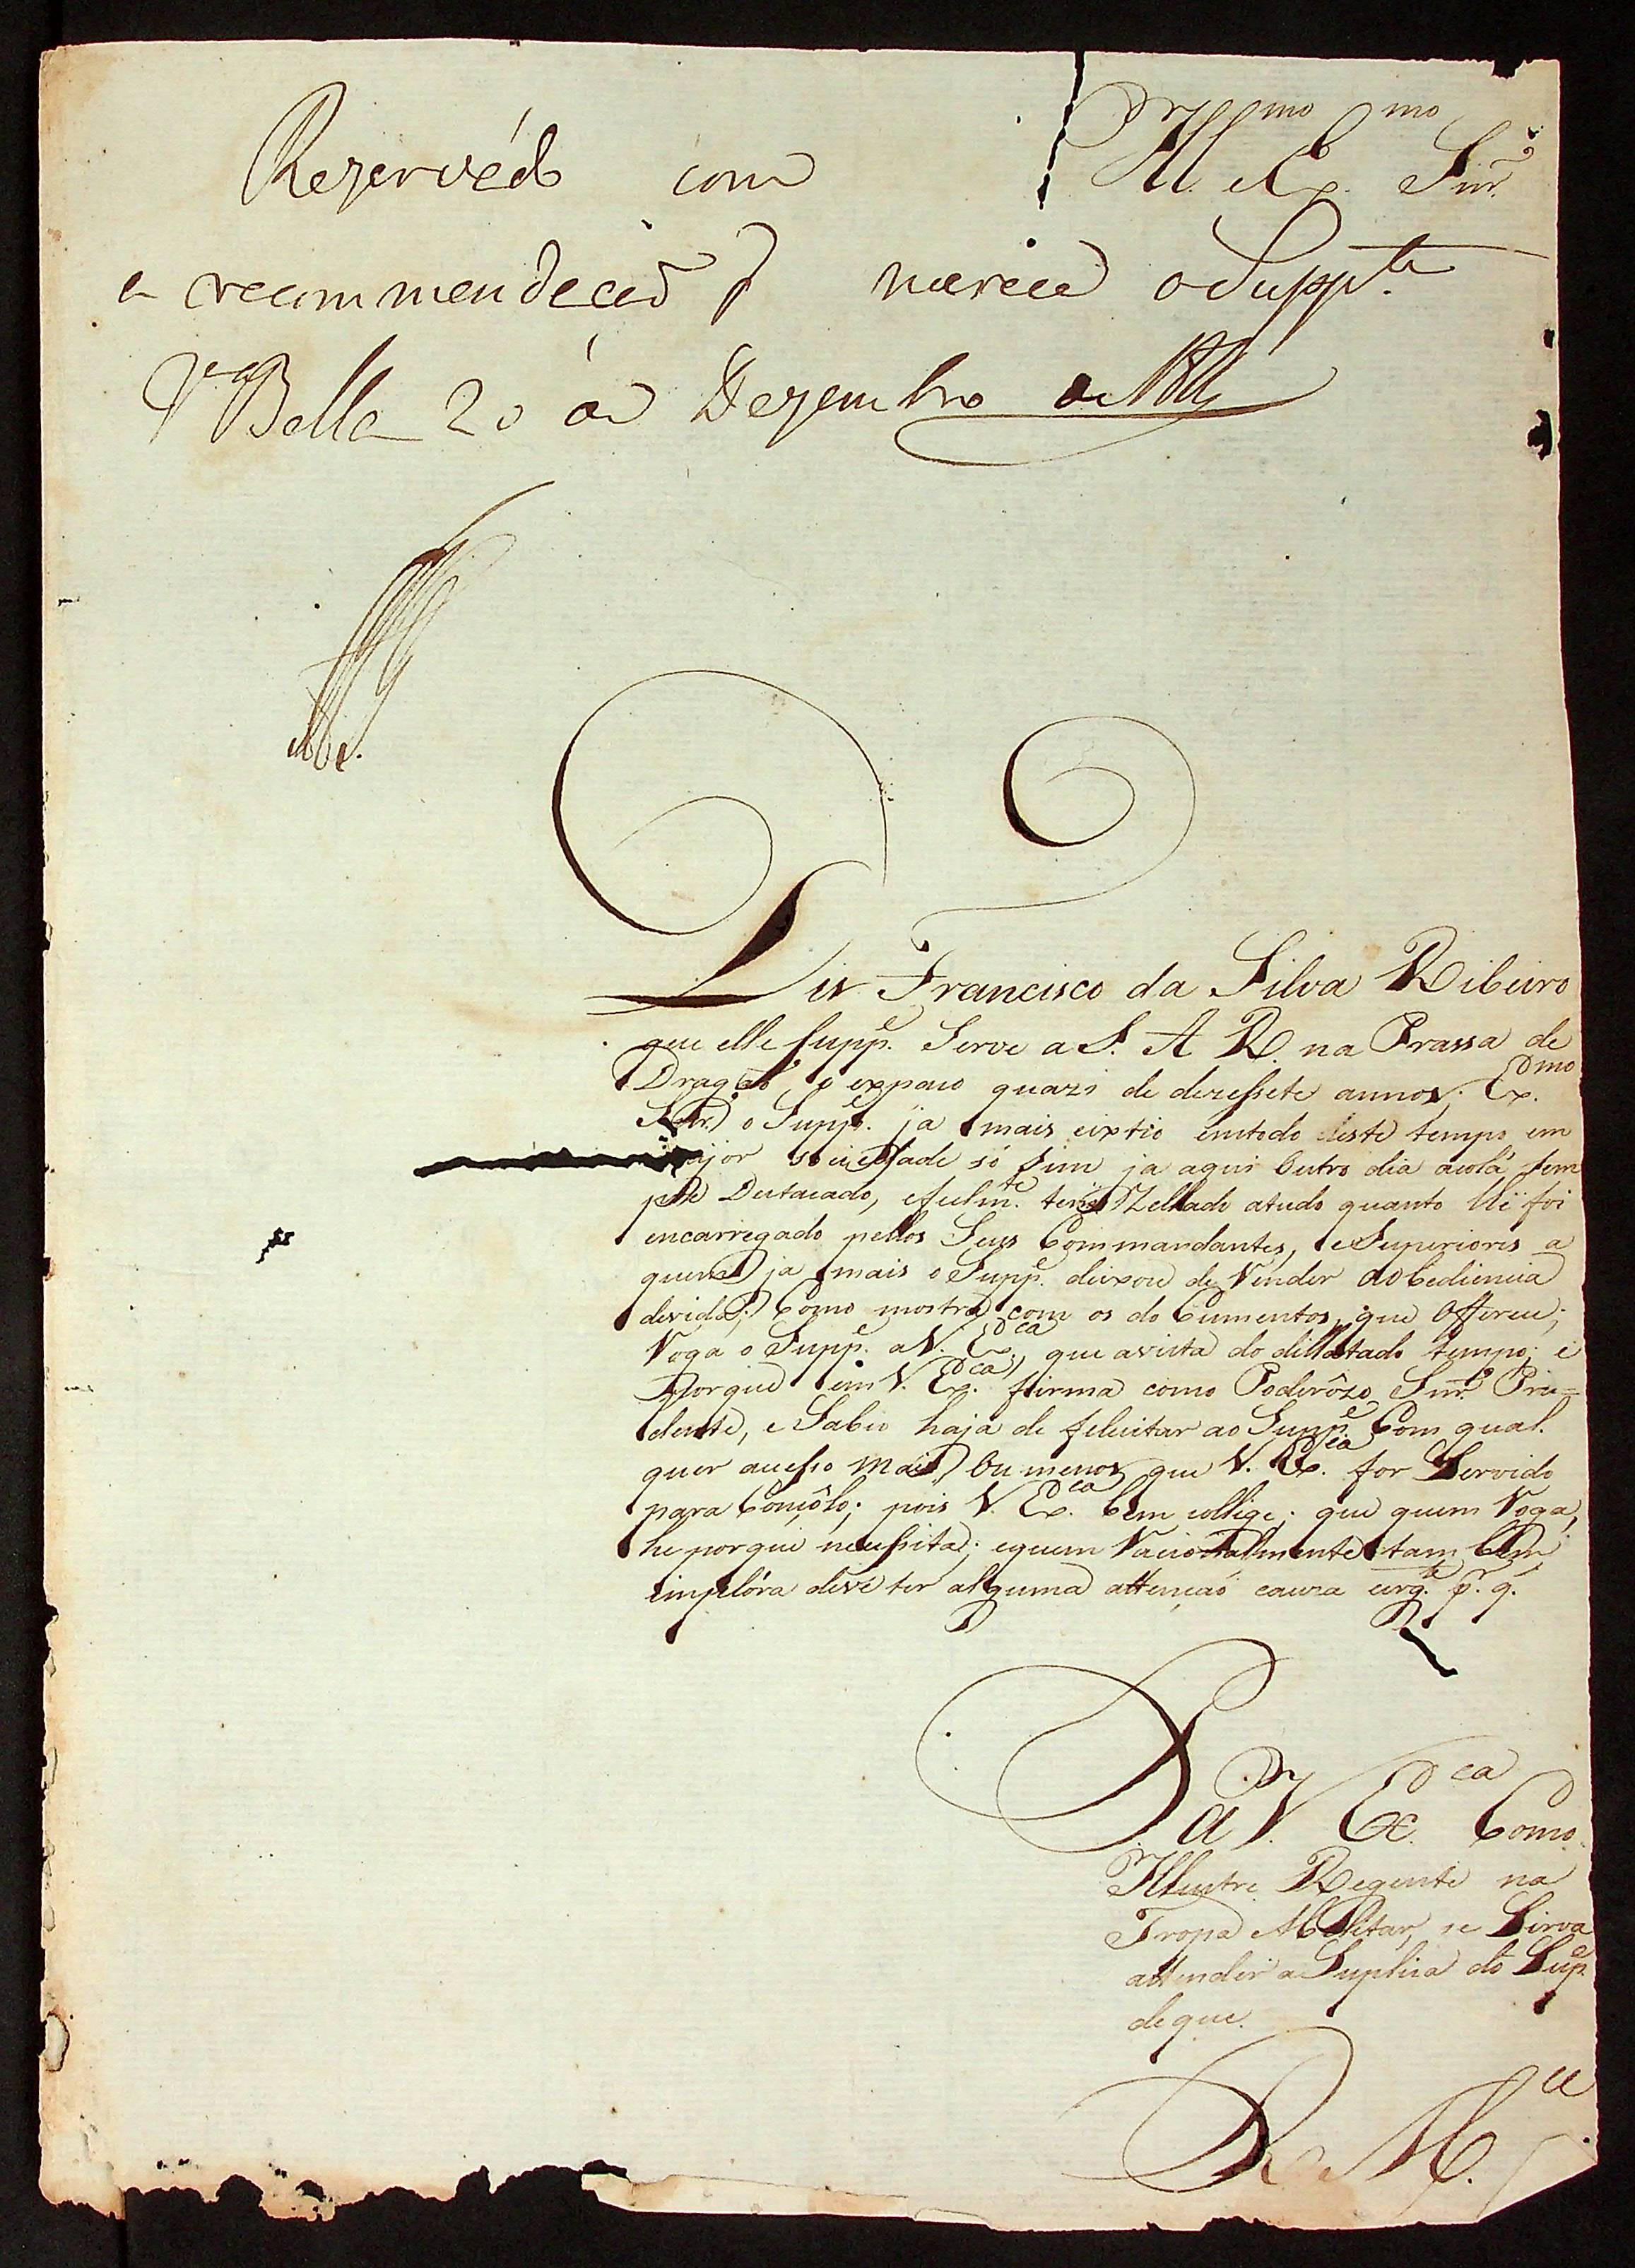 Ill.mo Ex.mo Snr.
Rezervado com
a recommendaçaõ q merece o Supp.te
V.a Bella 20 de Dezembro de
Diz Francisco da Silva Ribeiro
que elle Supp.e Serve a S. A R. na Prassa de
Dragaõ, o expaço quazi de dezessete annos; Ex.mo
Snr. o Supp.e ja mais eixtio em todo deste tempo em
só sim ja aqui outro dia acolá sem
pre Destacado, e fielm.te tem Zellado atudo quanto lhe foi
encarregado pellos Seus Commandantes, e Superiores a
quem ja mais o Supp.e deixou de Render a obediencia
devida; Como mostra com os do Cumentos, que Offerece;
Roga o Supp.e a V. Ex.ca, que avista do dillatado tempo; e
Porque em V. Ex.ca firma como Poderôzo Snr. Pru=
dente, e Sabio haja de felicitar ao Supp.e Com qual
quer acesso mais Ou menos que V. Ex.ca for Servido
para Comsólo; pois V. Ex.ca bem collige; que quem Roga,
he porque necessita; e quem Racionalmente tam bem
implóra deve ter alguma attençaõ cauza urg.te p.r q.
P. a V. Ex.ca Como
Illustre Regente na
Tropa Militar, se Sirva
attender a Suplica do Sup.e
de que.
R. M.ce